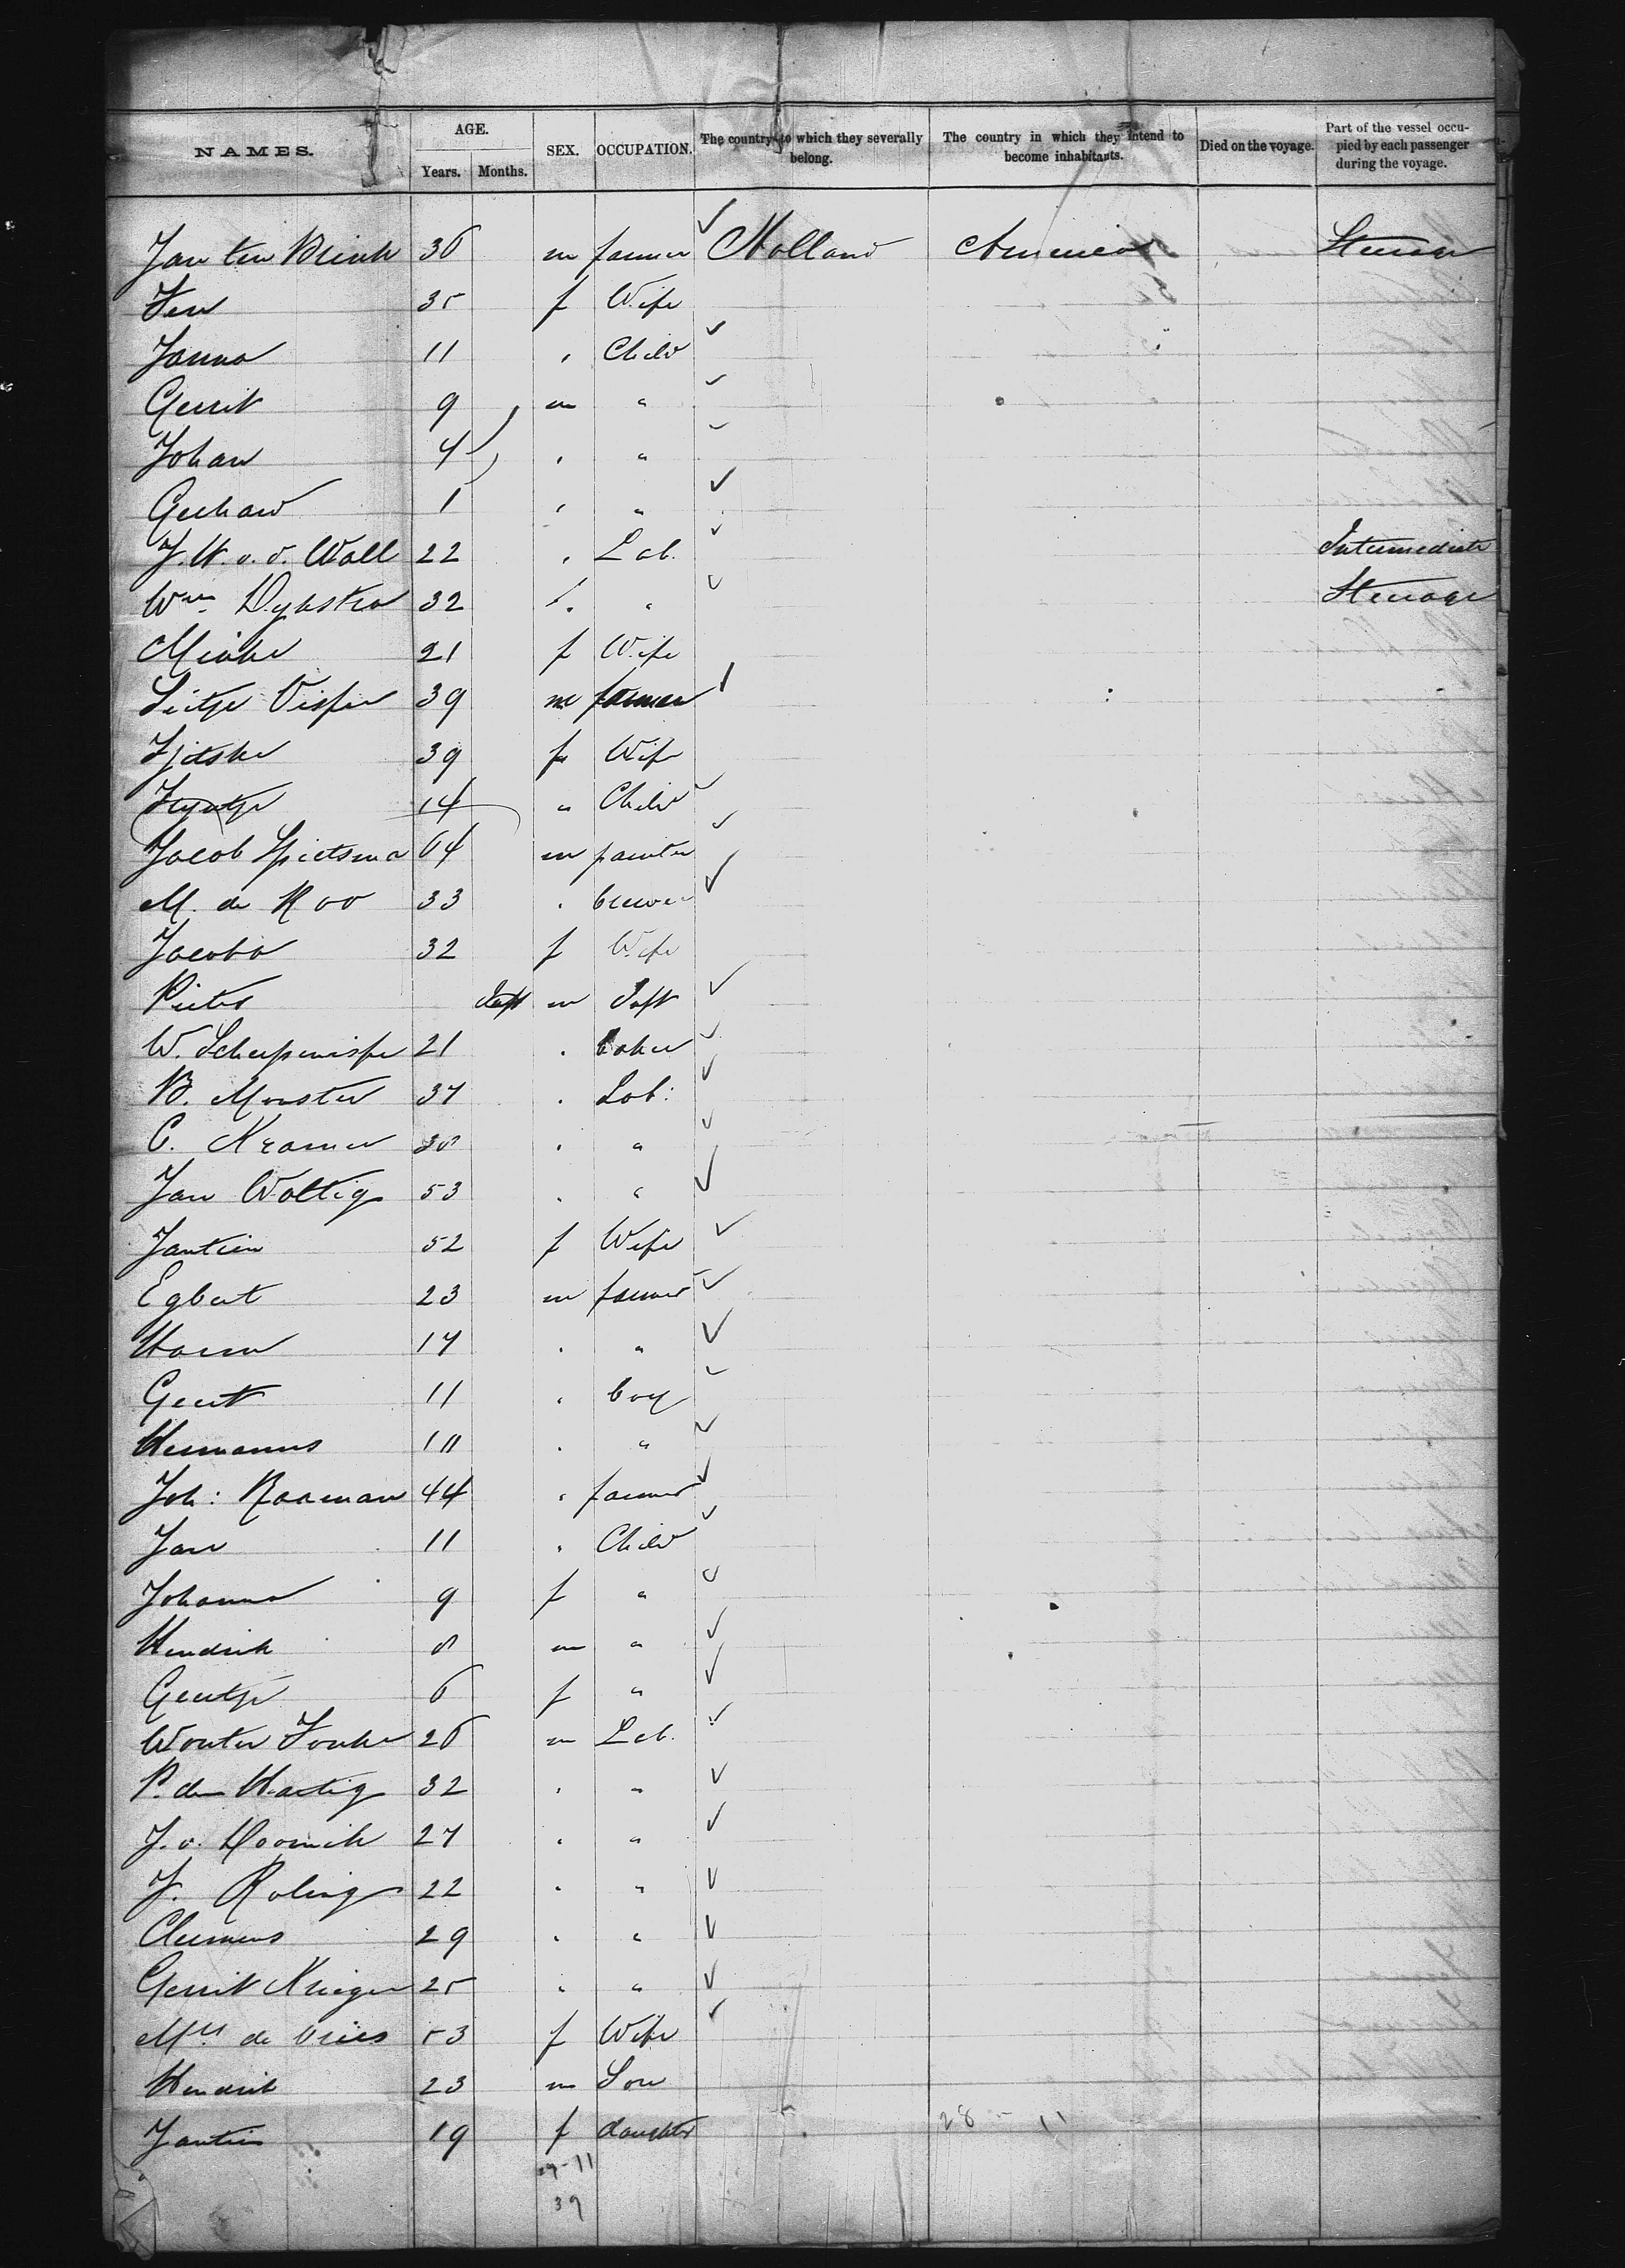 NAMES. AGE. Years. Months. SEX. OCCUPATION. The country to which they severally belong. The country in which they intend to become inhabitants. Died on the voyage. Part of the vessel occupied by each passenger during the voyage.
Jan ten Brink 36 m farmer Holland America Steerage
35 f Wife
Janna 11 " Child
Gerrit 9 m "
Johan 4 " "
Gerhard 1 " "
J. H. v. d. Wall 22 " Lab. Intermediate
Wm. Dykstra 32 " " Steerage
Minke 21 f Wife
Sietje Visser 39 m farmer
Tjitske 39 f Wife
14 " Child
Jacob Spietsma 64 m painter
M. de Roo 33 " brewer
Jacoba 32 f Wife
Pieter Inft m Inft
W. Scherpenisse 21 " baker
B. Monster 37 " Lab:
C. Kramer 30 " "
Jan Woltig 53 " "
Jantien 52 f Wife
Egbert 23 m farmer
Harm 17 " "
Geert 11 " boy
Hermannus 10 " "
Joh: Raaman 44 " farmer
Jan 11 " Child
Johanna 9 f "
Hendrik 8 m "
Geertje 6 f "
Wouter Fonke 26 m Lab.
P. den Hartig 32 " "
J. v. Hoornik 27 " "
J. Roling 22 " "
Clemens 29 " "
Gerrit Krieger 25 " "
Mrs de Vries 53 f Wife
Hendrik 23 m Son
Jantien 19 f daughter
28 - 11
29-11
39